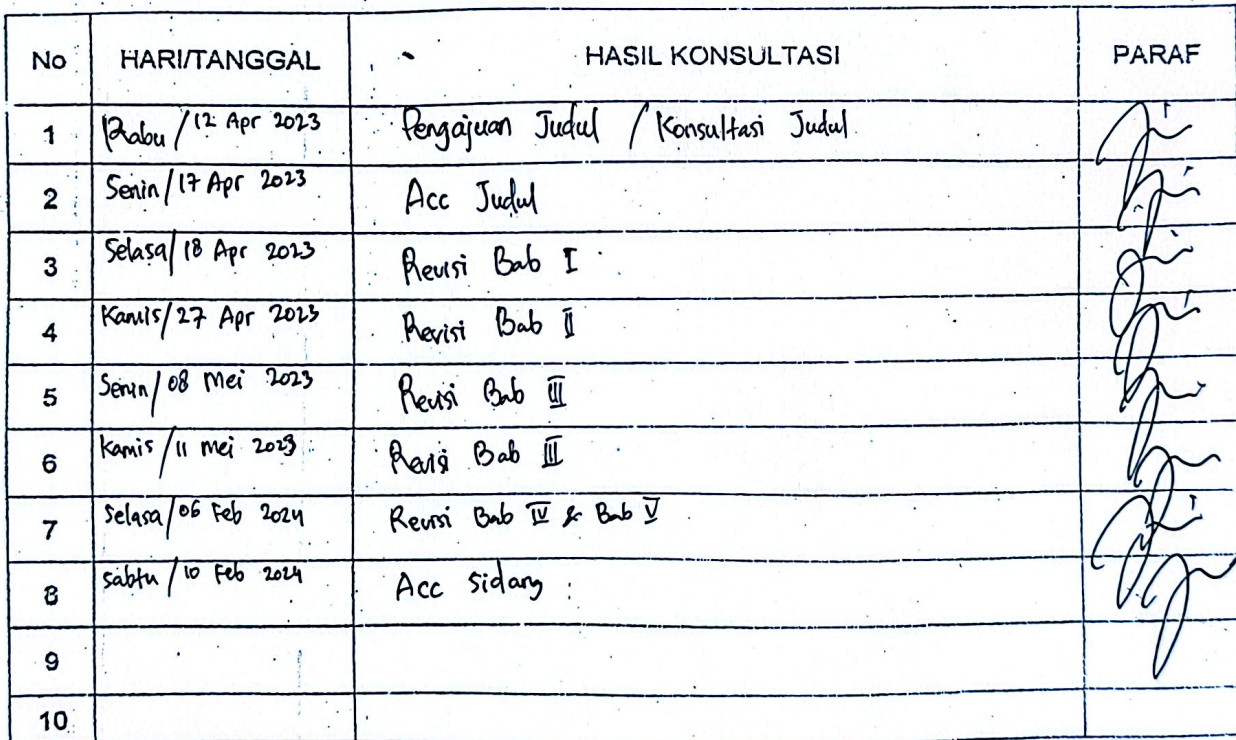 No HARI/TANGGAL HASIL KONSULTASI PARAF
1 Rabu / 12 Apr 2023 Pengajuan Judul / Konsultasi Judul
2 Senin / 17 Apr 2023 Acc Judul
3 Selasa / 18 Apr 2023 Revisi Bab I
4 Kamis / 27 Apr 2023 Revisi Bab II
5 Senin / 08 Mei 2023 Revisi Bab III
6 Kamis / 11 Mei 2023 Revisi Bab III
7 Selasa / 06 Feb 2024 Revisi Bab IV & Bab V
8 Sabtu / 10 Feb 2024 Acc Sidang
9
10